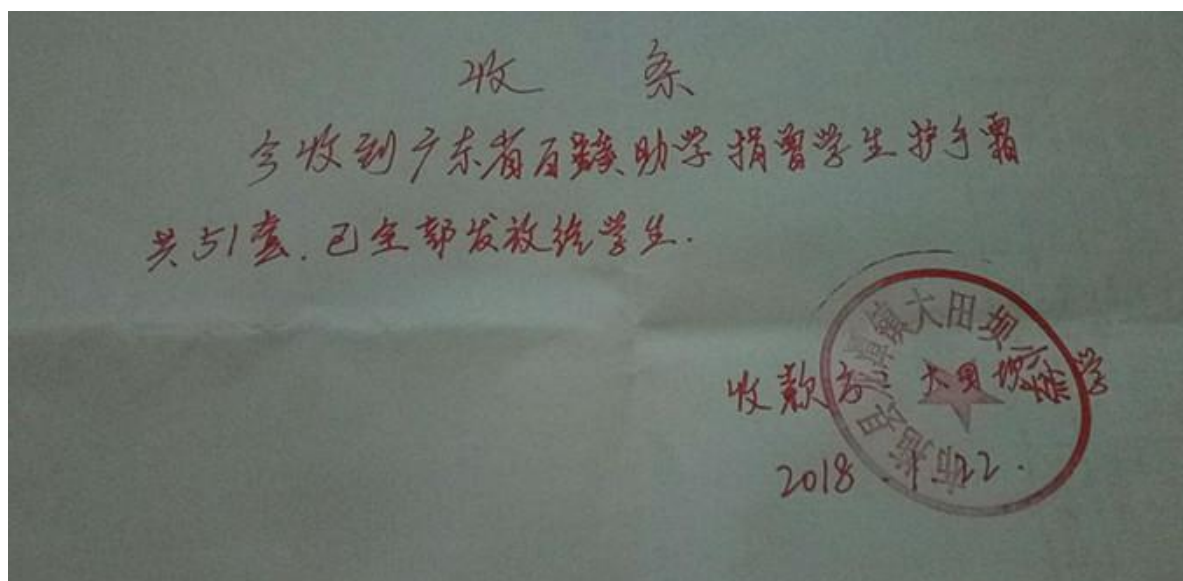 收 条
今收到广东省百蝶助学捐曾学生护手霜
共51套.已全部发放给学生.
收款方 大田坝小学
2018.1.22.
布拖县龙潭镇大田坝小学